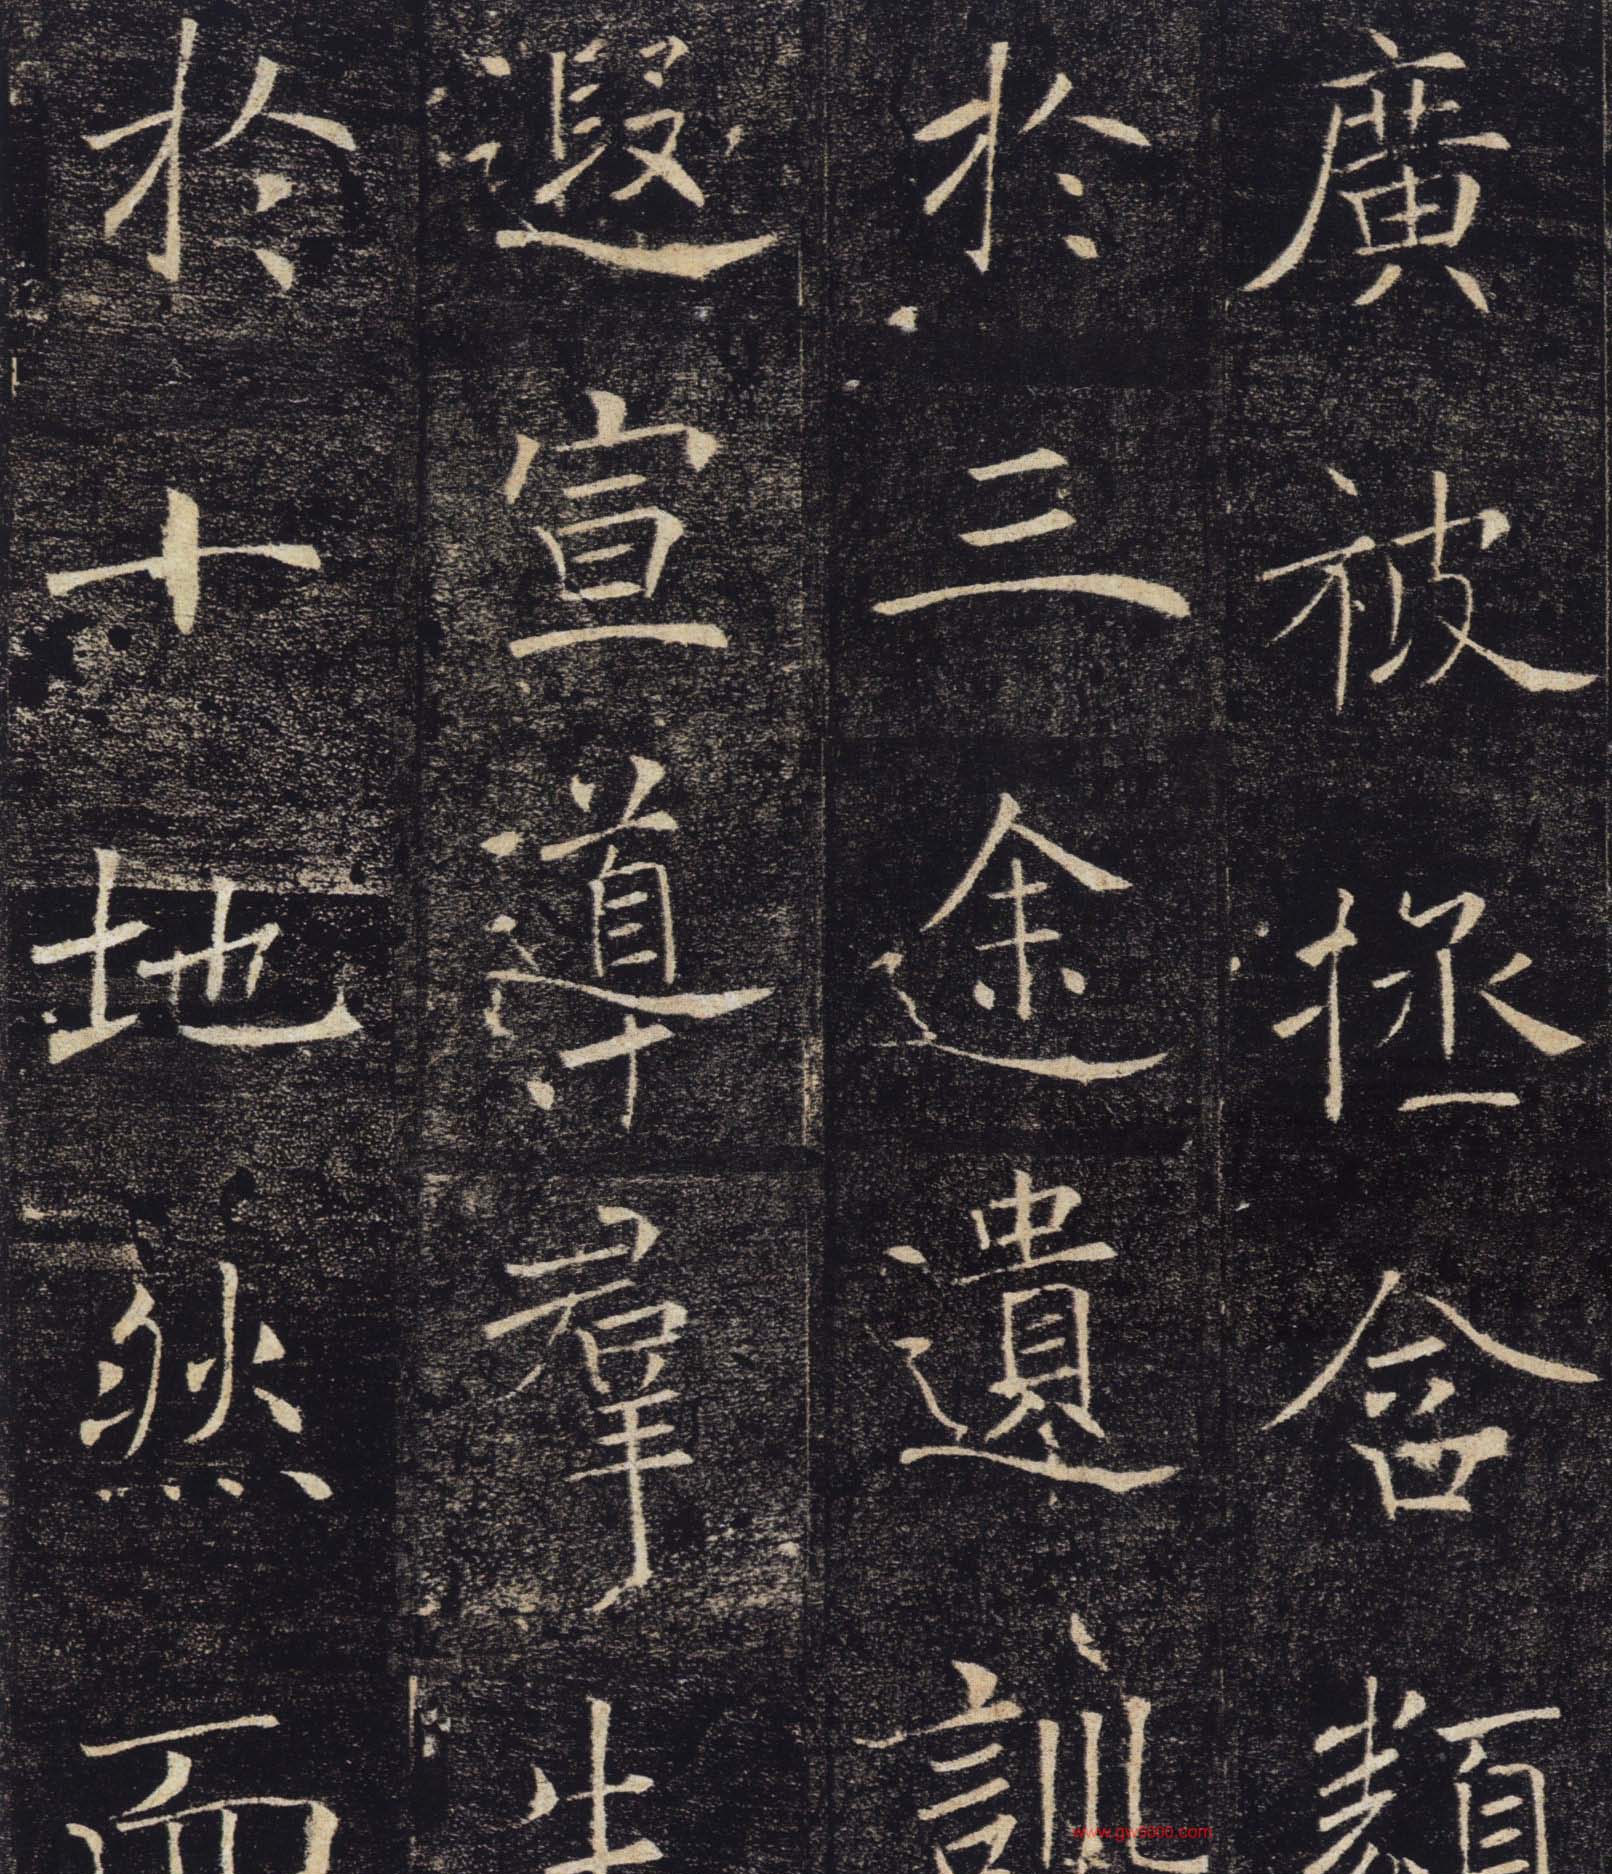 廣被拯含類
於三途遺訓
遐宣導羣生
於十地然而